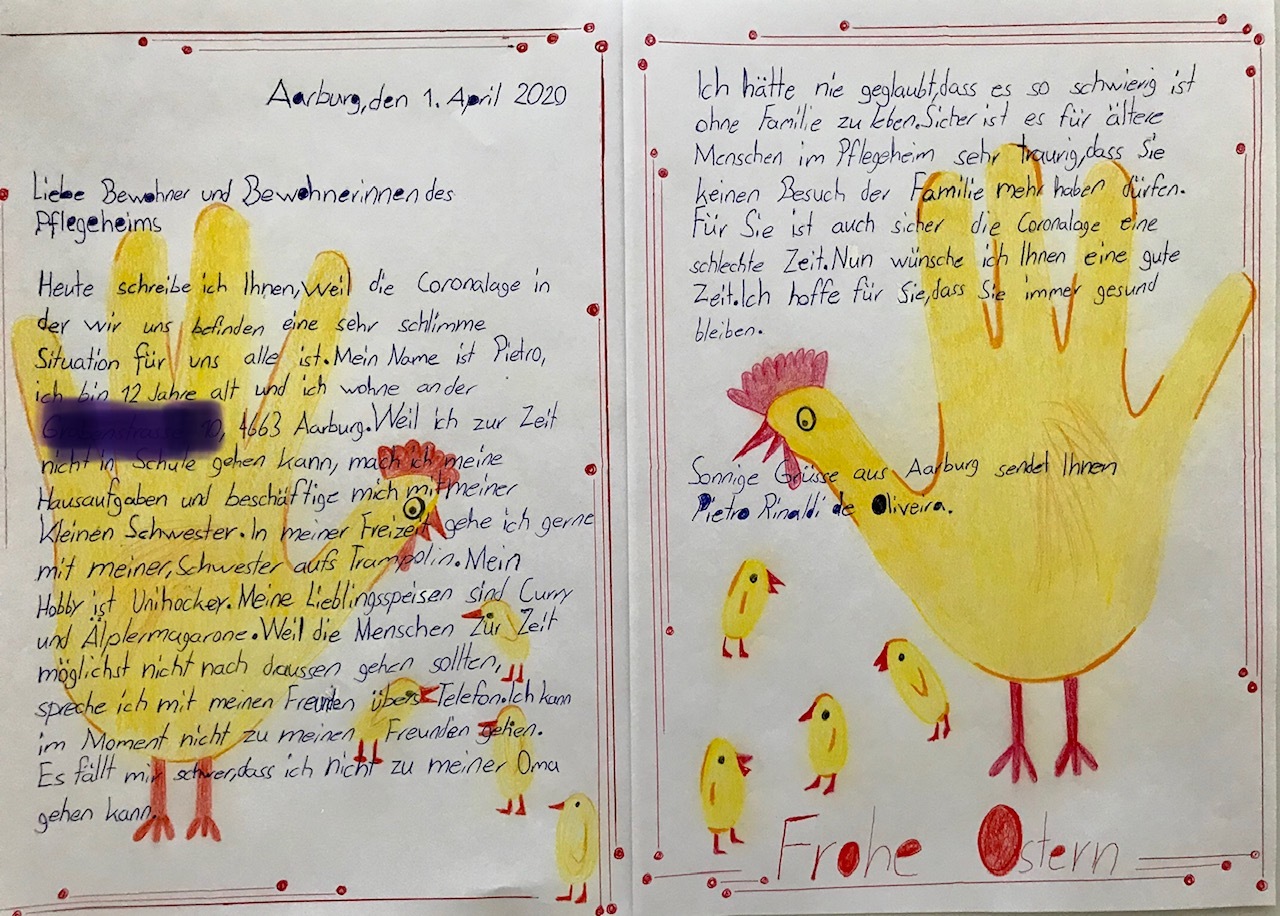 Aarburg, den 1. April 2020
Liebe Bewohner und Bewohnerinnen des
Pflegeheims
Heute schreibe ich Ihnen, weil die Coronalage in
der wir uns befinden eine sehr schlimme
Situation für uns alle ist. Mein Name ist Pietro,
ich bin 12 Jahre alt und ich wohne an der
4663 Aarburg. Weil ich zur Zeit
nicht in Schule gehen kann, mach ich meine
Hausaufgaben und beschäftige mich mit meiner
kleinen Schwester. In meiner Freizeit gehe ich gerne
mit meiner, Schwester aufs Trampolin. Mein
Hobby ist Unihockey. Meine Lieblingsspeisen sind Curry
und Älplermagarone. Weil die Menschen zur Zeit
möglichst nicht nach draussen gehen sollten,
spreche ich mit meinen Freunden übers Telefon. Ich kann
im Moment nicht zu meinen Freunden gehen.
Es fällt mir schwer, dass ich nicht zu meiner Oma
gehen kann.
Ich hätte nie geglaubt, dass es so schwierig ist
ohne Familie zu leben. Sicher ist es für ältere
Menschen im Pflegeheim sehr traurig, dass Sie
keinen Besuch der Familie mehr haben dürfen.
Für Sie ist auch sicher die Coronalage eine
schlechte Zeit. Nun wünsche ich Ihnen eine gute
Zeit. Ich hoffe für Sie, dass Sie immer gesund
bleiben.
Sonnige Grüsse aus Aarburg sendet Ihnen
Pietro Rinaldi de Oliveira.
Frohe Ostern